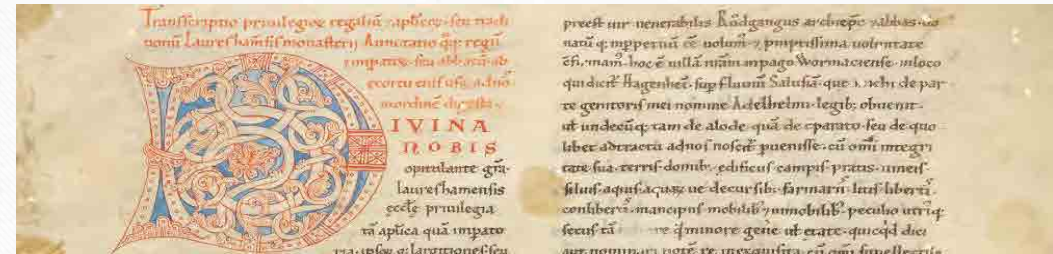 Transscriptio privilegioꝝ regaliũ ⁊ apl̃icoꝝ seu tradi
tionũ Lauresham̃sis monasterij Annotatio q̃q; regũ
⁊ impatoꝝ seu abbatũ ab
exortu eiusdẽ usq; ad nõ
in ordinẽ digesta
IVINA
NOBIS
opitulante gr̃a
laureshamensis
eccl̃e privilegia
tã apl̃ica quã impato
preest vir venerabilis Rǒdgangus archiep̃c ⁊ abbas
natũ q; inppetuũ eẽ volum̃ ⁊ pmptissima voluntate
illã mãm inpago Wormaciense inloco
qui dicit̃ Hagenheĩ sup fluuiũ Salusiã que
te genitoris mei nomine Adelhelmi legib; obuenit
ut undecũq; tam de alode quã de cparato seu de quo
libet adtractu ad nos noscit̃ puenisse cũ omĩ integri
tate sua terris domib; edificiis campis pratis uineis
siluis aquis aquaꝝ ue decursib; farinariĩs litis libertĩs
conlibertĩs mancipiis mobilib; ⁊ inmobilib; peculio utriq;
secus tã q̃ minore gene ut etate quicq̃d dici
aut nominari potẽ re inexquisita cũ omĩ supellectile